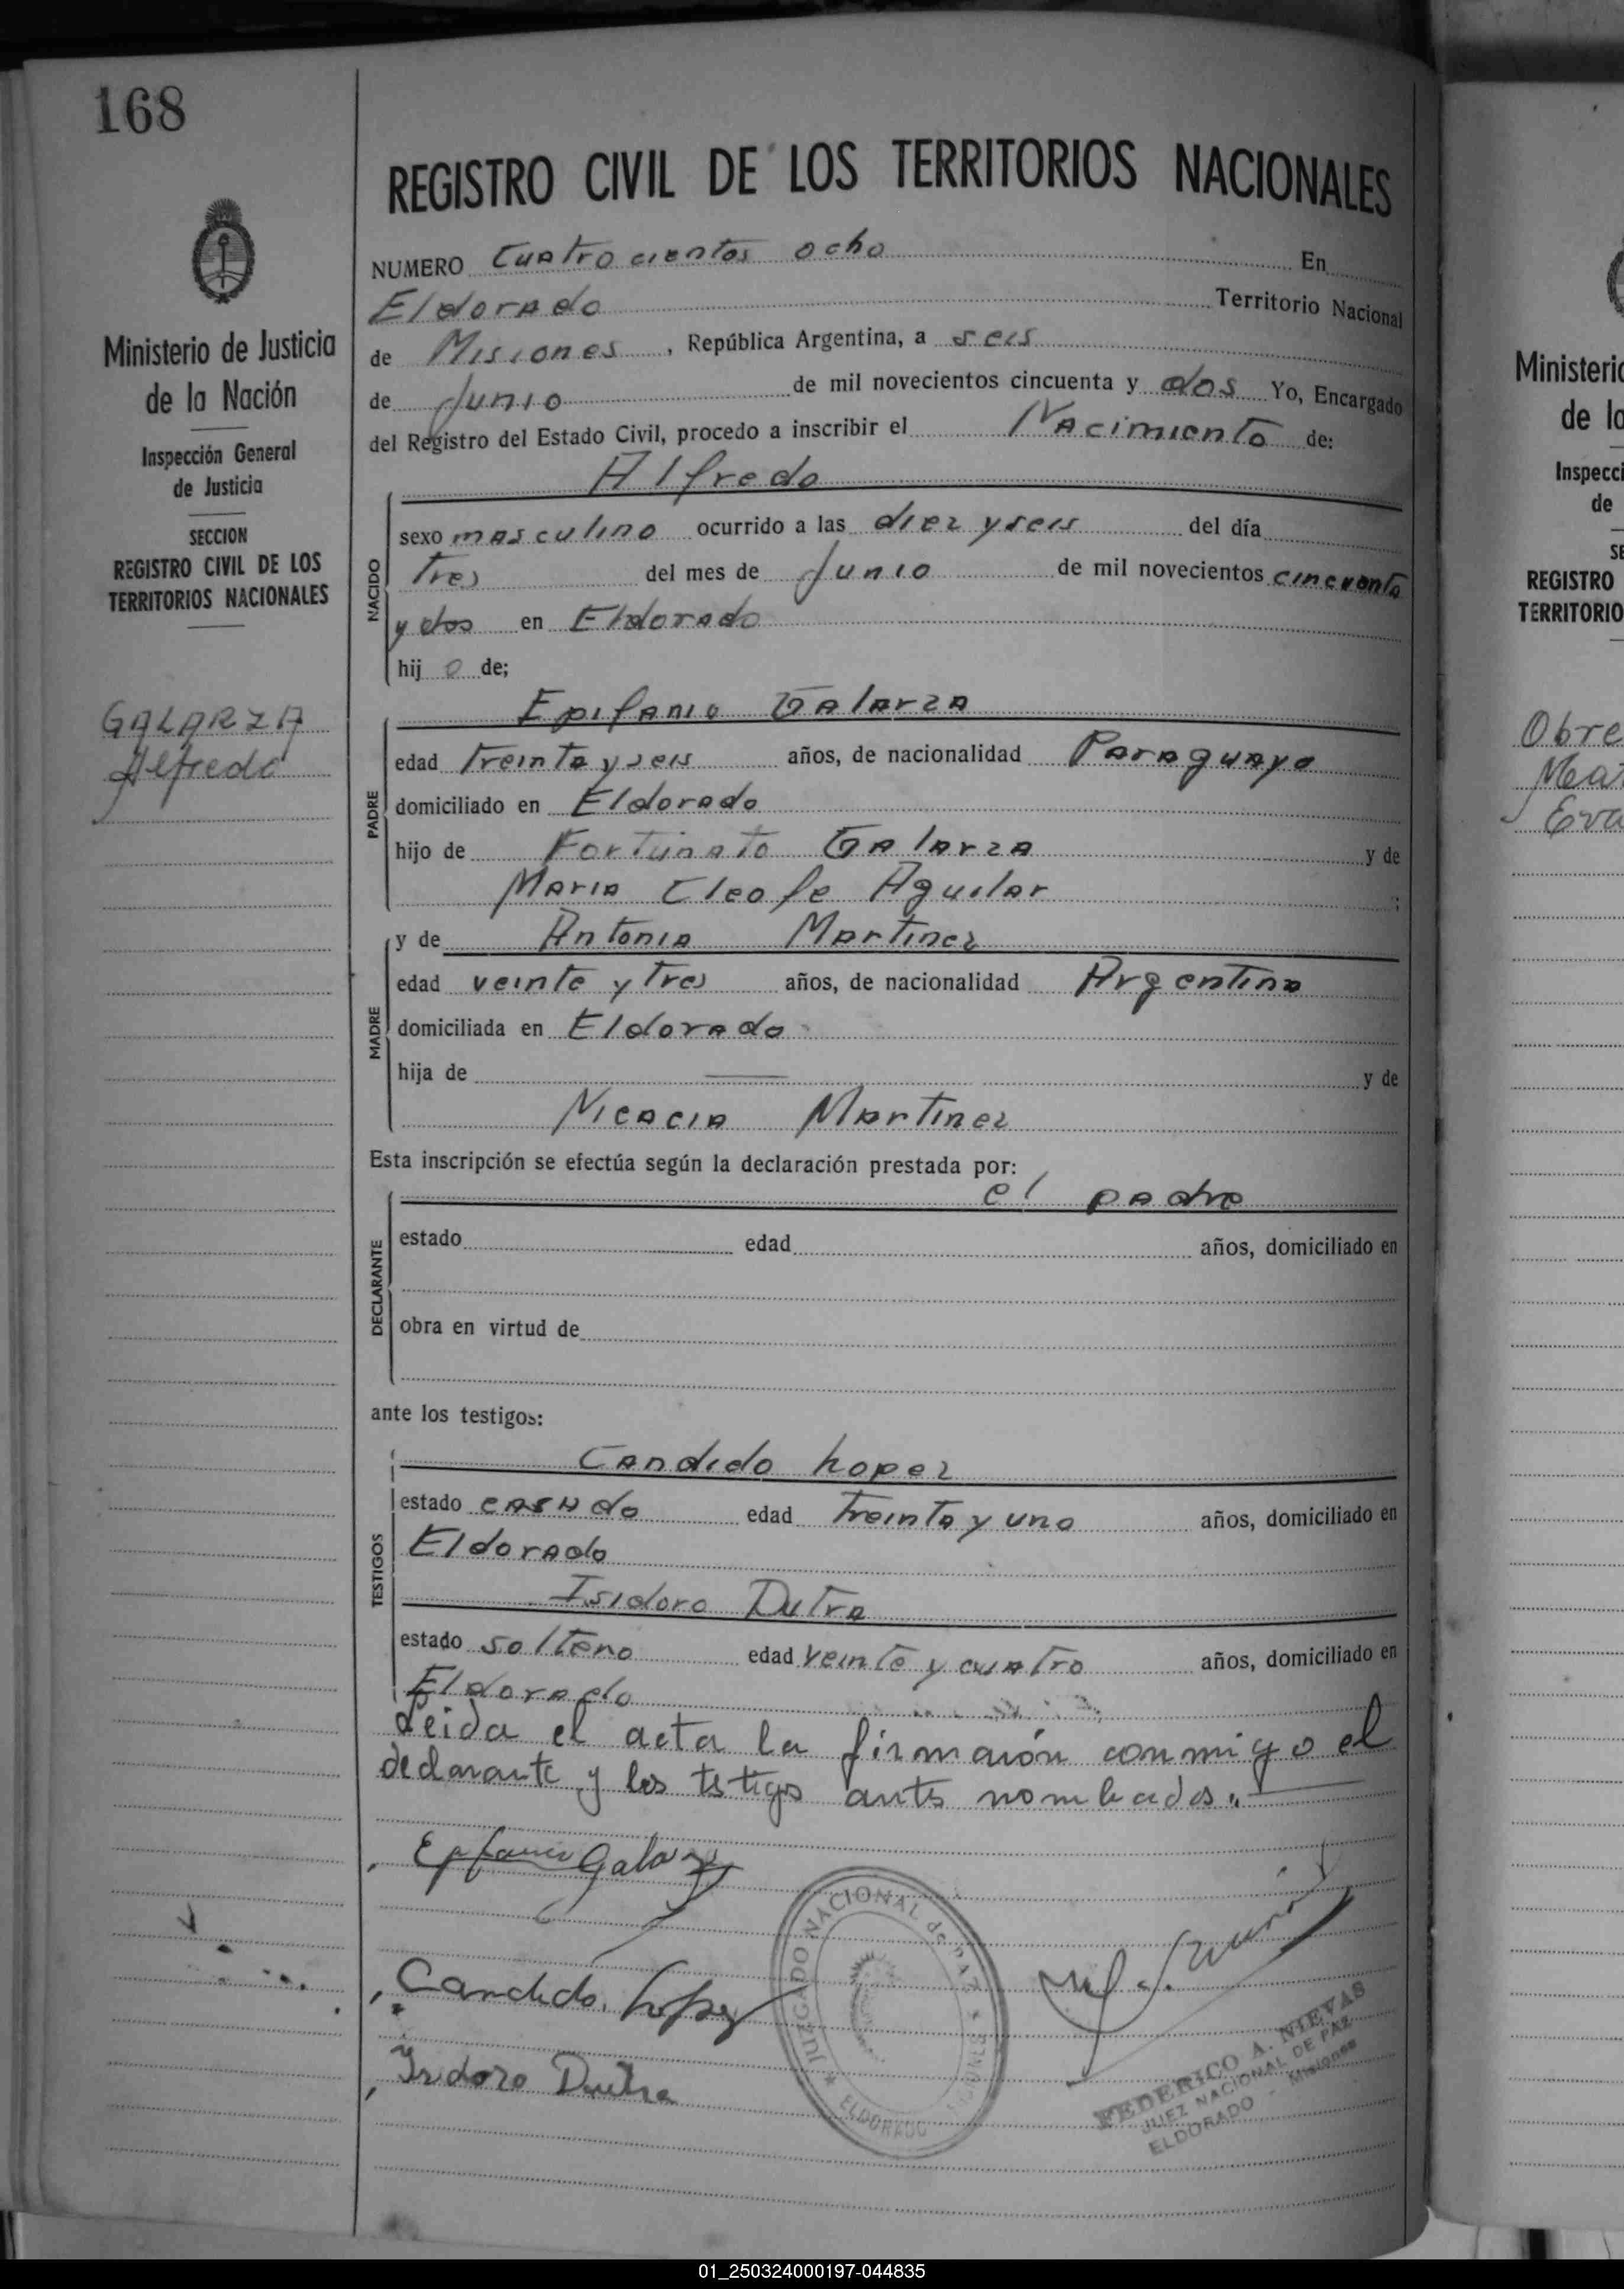 168
REGISTRO CIVIL DE LOS TERRITORIOS NACIONALES
Ministerio de Justicia
de la Nación
Inspección General
de Justicia
SECCION
REGISTRO CIVIL DE LOS
TERRITORIOS NACIONALES
GALARZA
Alfredo
NUMERO Cuatrocientos ocho En
Eldorado Territorio Nacional
de Misiones, República Argentina, a seis
de Junio de mil novecientos cincuenta y dos Yo, Encargado
del Registro del Estado Civil, procedo a inscribir el Nacimiento de:
Alfredo
NACIDO
sexo masculino ocurrido a las diez y seis del día
tres del mes de Junio de mil novecientos cincuenta
y dos en Eldorado
hij o de;
Epifanio Galarza
PADRE
edad treinta y seis años, de nacionalidad Paraguaya
domiciliado en Eldorado
hijo de Fortunato Galarza y de
Maria Cleofe Aguilar ;
MADRE
y de Antonia Martinez
edad veinte y tres años, de nacionalidad Argentina
domiciliada en Eldorado
hija de — y de
Nicacia Martinez
Esta inscripción se efectúa según la declaración prestada por:
el padre
DECLARANTE
estado edad años, domiciliado en
obra en virtud de
ante los testigos:
TESTIGOS
Candido Lopez
estado casado edad treinta y uno años, domiciliado en
Eldorado
Isidoro Dutra
estado soltero edad veinte y cuatro años, domiciliado en
Eldorado
Leida el acta la firmarón conmigo el
declarante y los testigos antes nombrados.
Epifanio Galarza
Candido Lopez
Isidoro Dutra
JUZGADO NACIONAL de PAZ
ELDORADO MISIONES
FEDERICO A. NIEVAS
JUEZ NACIONAL DE PAZ
ELDORADO - Misiones
Ministerio
de la
Inspecci
de
SE
REGISTRO
TERRITORIO
Obre
Mar
Eva
01_250324000197-044835